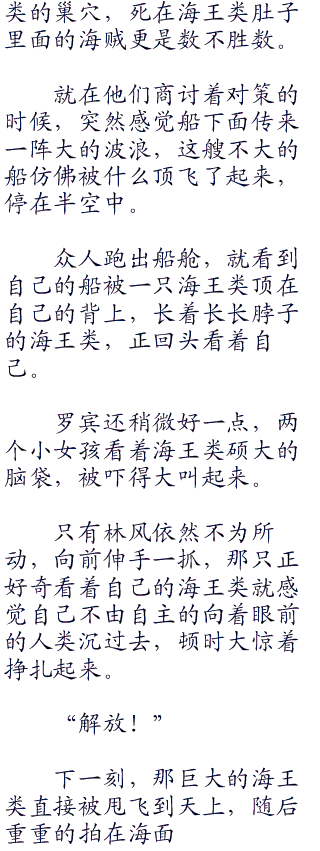 类的巢穴，死在海王类肚子
里面的海贼更是数不胜数。
就在他们商讨着对策的
时候，突然感觉船下面传来
一阵大的波浪，这艘不大的
船仿佛被什么顶飞了起来，
停在半空中。
众人跑出船舱，就看到
自己的船被一只海王类顶在
自己的背上，长着长长脖子
的海王类，正回头看着自
己。
罗宾还稍微好一点，两
个小女孩看着海王类硕大的
脑袋，被吓得大叫起来。
只有林风依然不为所
动，向前伸手一抓，那只正
好奇看着自己的海王类就感
觉自己不由自主的向着眼前
的人类沉过去，顿时大惊着
挣扎起来。
“解放！”
下一刻，那巨大的海王
类直接被甩飞到天上，随后
重重的拍在海面